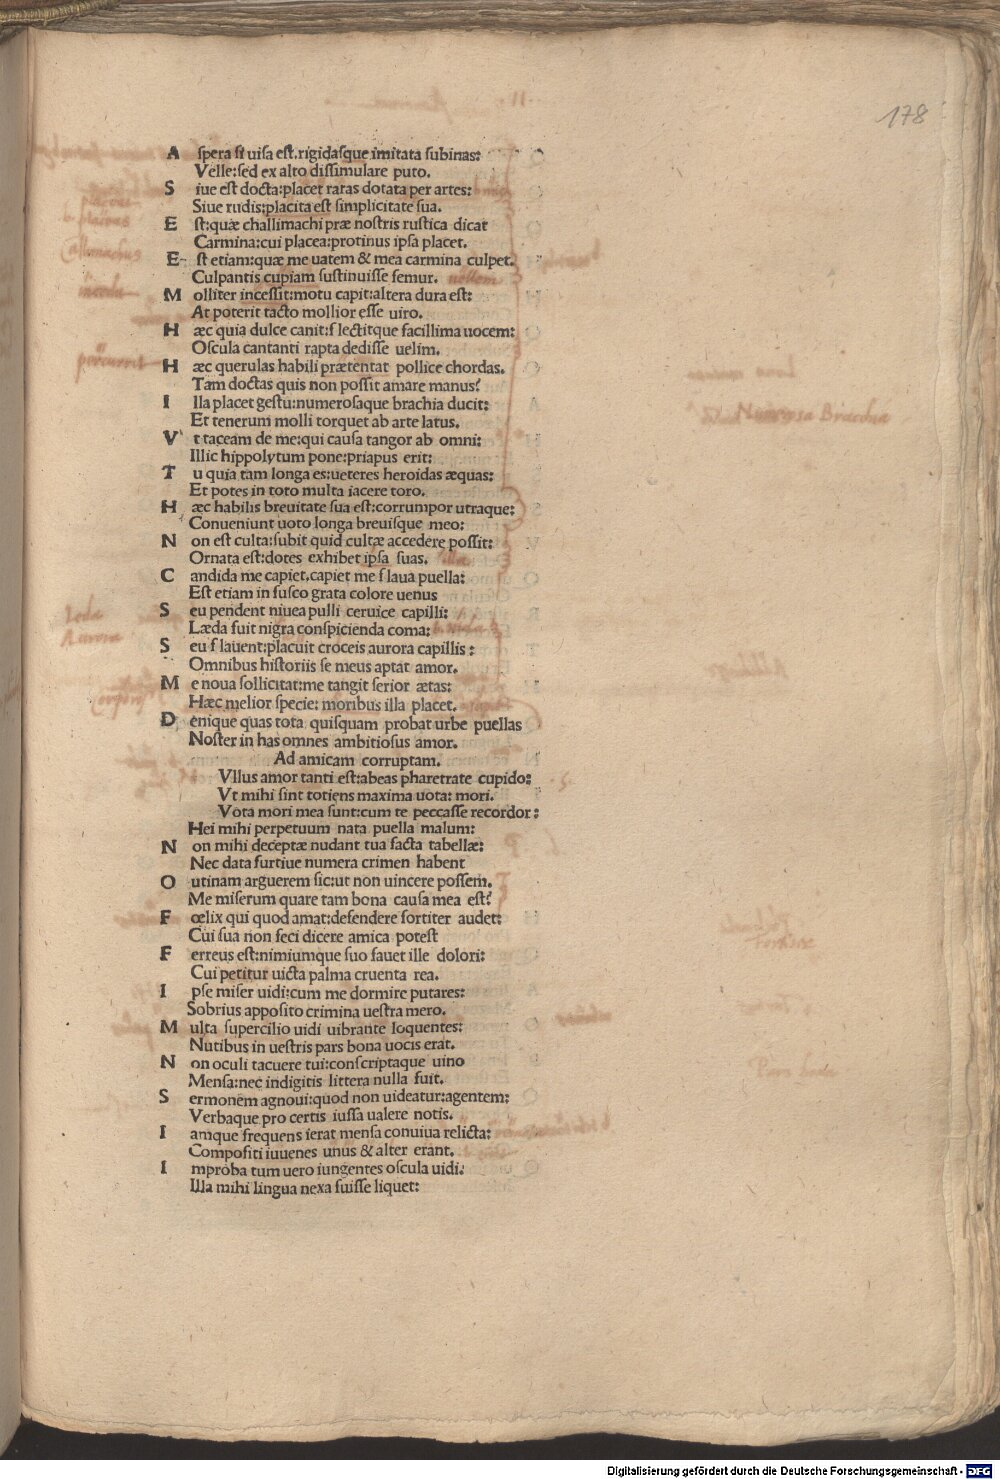 178
A spera si uisa est.rigidasque imitata subinas:
Velle:sed ex alto dissimulare puto.
S iue est docta:placet raras dotata per artes:
Siue rudis:placita est simplicitate sua.
E st:quæ challimachi præ nostris rustica dicat
Carmina:cui placea:protinus ipsa placet.
E st etiam:quæ me uatem & mea carmina culpet.
Culpantis cupiam sustinuisse femur. uellem
M olliter incessit:motu capit:altera dura est:
At poterit tacto mollior esse uiro.
H æc quia dulce canit:flectitque facillima uocem:
Oscula cantanti rapta dedisse uelim.
H æc querulas habili prætentat pollice chordas.
Tam doctas quis non possit amare manus?
I lla placet gestu:numerosaque brachia ducit:
Numerosa Brachia
Et tenerum molli torquet ab arte latus.
V t taceam de me:qui causa tangor ab omni:
Illic hippolytum pone:priapus erit:
T u quia tam longa es:ueteres heroidas æquas:
Et potes in toto multa iacere toro.
H æc habilis breuitate sua est:corrumpor utraque:
Conueniunt uoto longa breuisque meo:
N on est culta:subit quid cultæ accedere possit:
Ornata est:dotes exhibet ipsa suas.
C andida me capiet.capiet me flaua puella:
Est etiam in fusco grata colore uenus
S eu pendent niuea pulli ceruice capilli:
Leda
Læda fuit nigra conspicienda coma:
Aurora
S eu flauent:placuit croceis aurora capillis:
Omnibus historiis se meus aptat amor.
M e noua sollicitat:me tangit serior ætas:
Hæc melior specie: moribus illa placet.
D enique quas tota quisquam probat urbe puellas
Noster in has omnes ambitiosus amor.
Ad amicam corruptam.
Vllus amor tanti est:abeas pharetrate cupido:
Vt mihi sint totiens maxima uota: mori.
Vota mori mea sunt:cum te peccasse recordor:
Hei mihi perpetuum nata puella malum:
N on mihi deceptæ nudant tua facta tabellæ:
Nec data furtiue numera crimen habent
O utinam arguerem sic:ut non uincere possem.
Me miserum quare tam bona causa mea est?
F œlix qui quod amat:defendere fortiter audet:
Cui sua non feci dicere amica potest
F erreus est:nimiumque suo fauet ille dolori:
Cui petitur uicta palma cruenta rea.
I pse miser uidi:cum me dormire putares:
Sobrius apposito crimina uestra mero.
M ulta supercilio uidi uibrante loquentes:
Nutibus in uestris pars bona uocis erat.
N on oculi tacuere tui:conscriptaque uino
Mensa:nec indigitis littera nulla fuit.
S ermonem agnoui:quod non uideatur:agentem:
Verbaque pro certis iussa ualere notis.
I amque frequens ierat mensa conuiua relicta:
Compositi iuuenes unus & alter erant.
I mproba tum uero iungentes oscula uidi:
Illa mihi lingua nexa fuisse liquet:
Digitalisierung gefördert durch die Deutsche Forschungsgemeinschaft - DFG